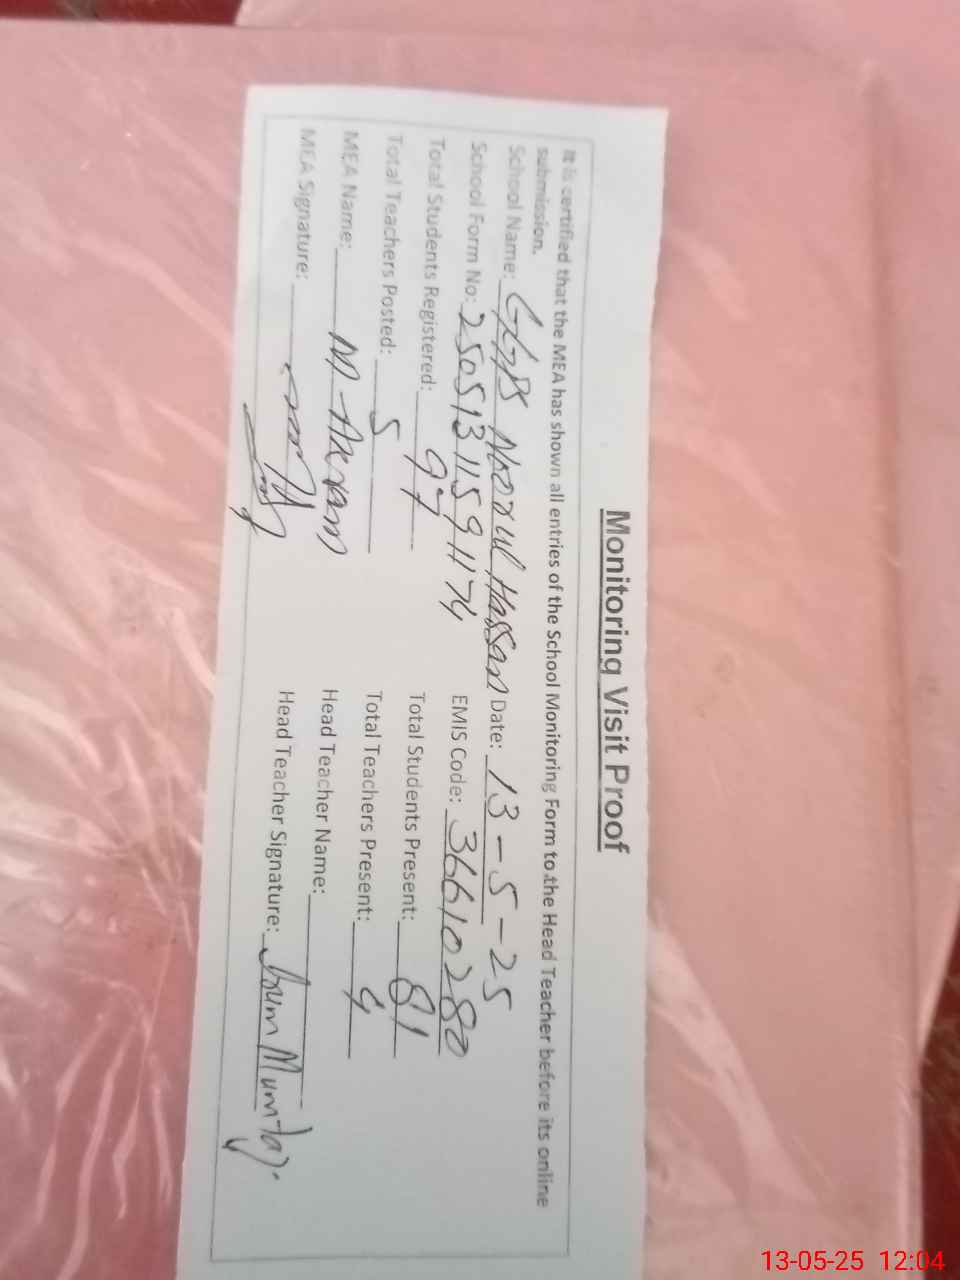 Monitoring Visit Proof
It is certified that the MEA has shown all entries of the School Monitoring Form to the Head Teacher before its online
submission.
School Name: GGPS Noorul Hassan Date: 13-5-25
School Form No: 25051311591174 EMIS Code: 36610280
Total Students Registered: 97 Total Students Present: 81
Total Teachers Posted: 5 Total Teachers Present: 4
MEA Name: M-Akram Head Teacher Name:
MEA Signature: Head Teacher Signature: Mumtaz.
13-05-25 12:04